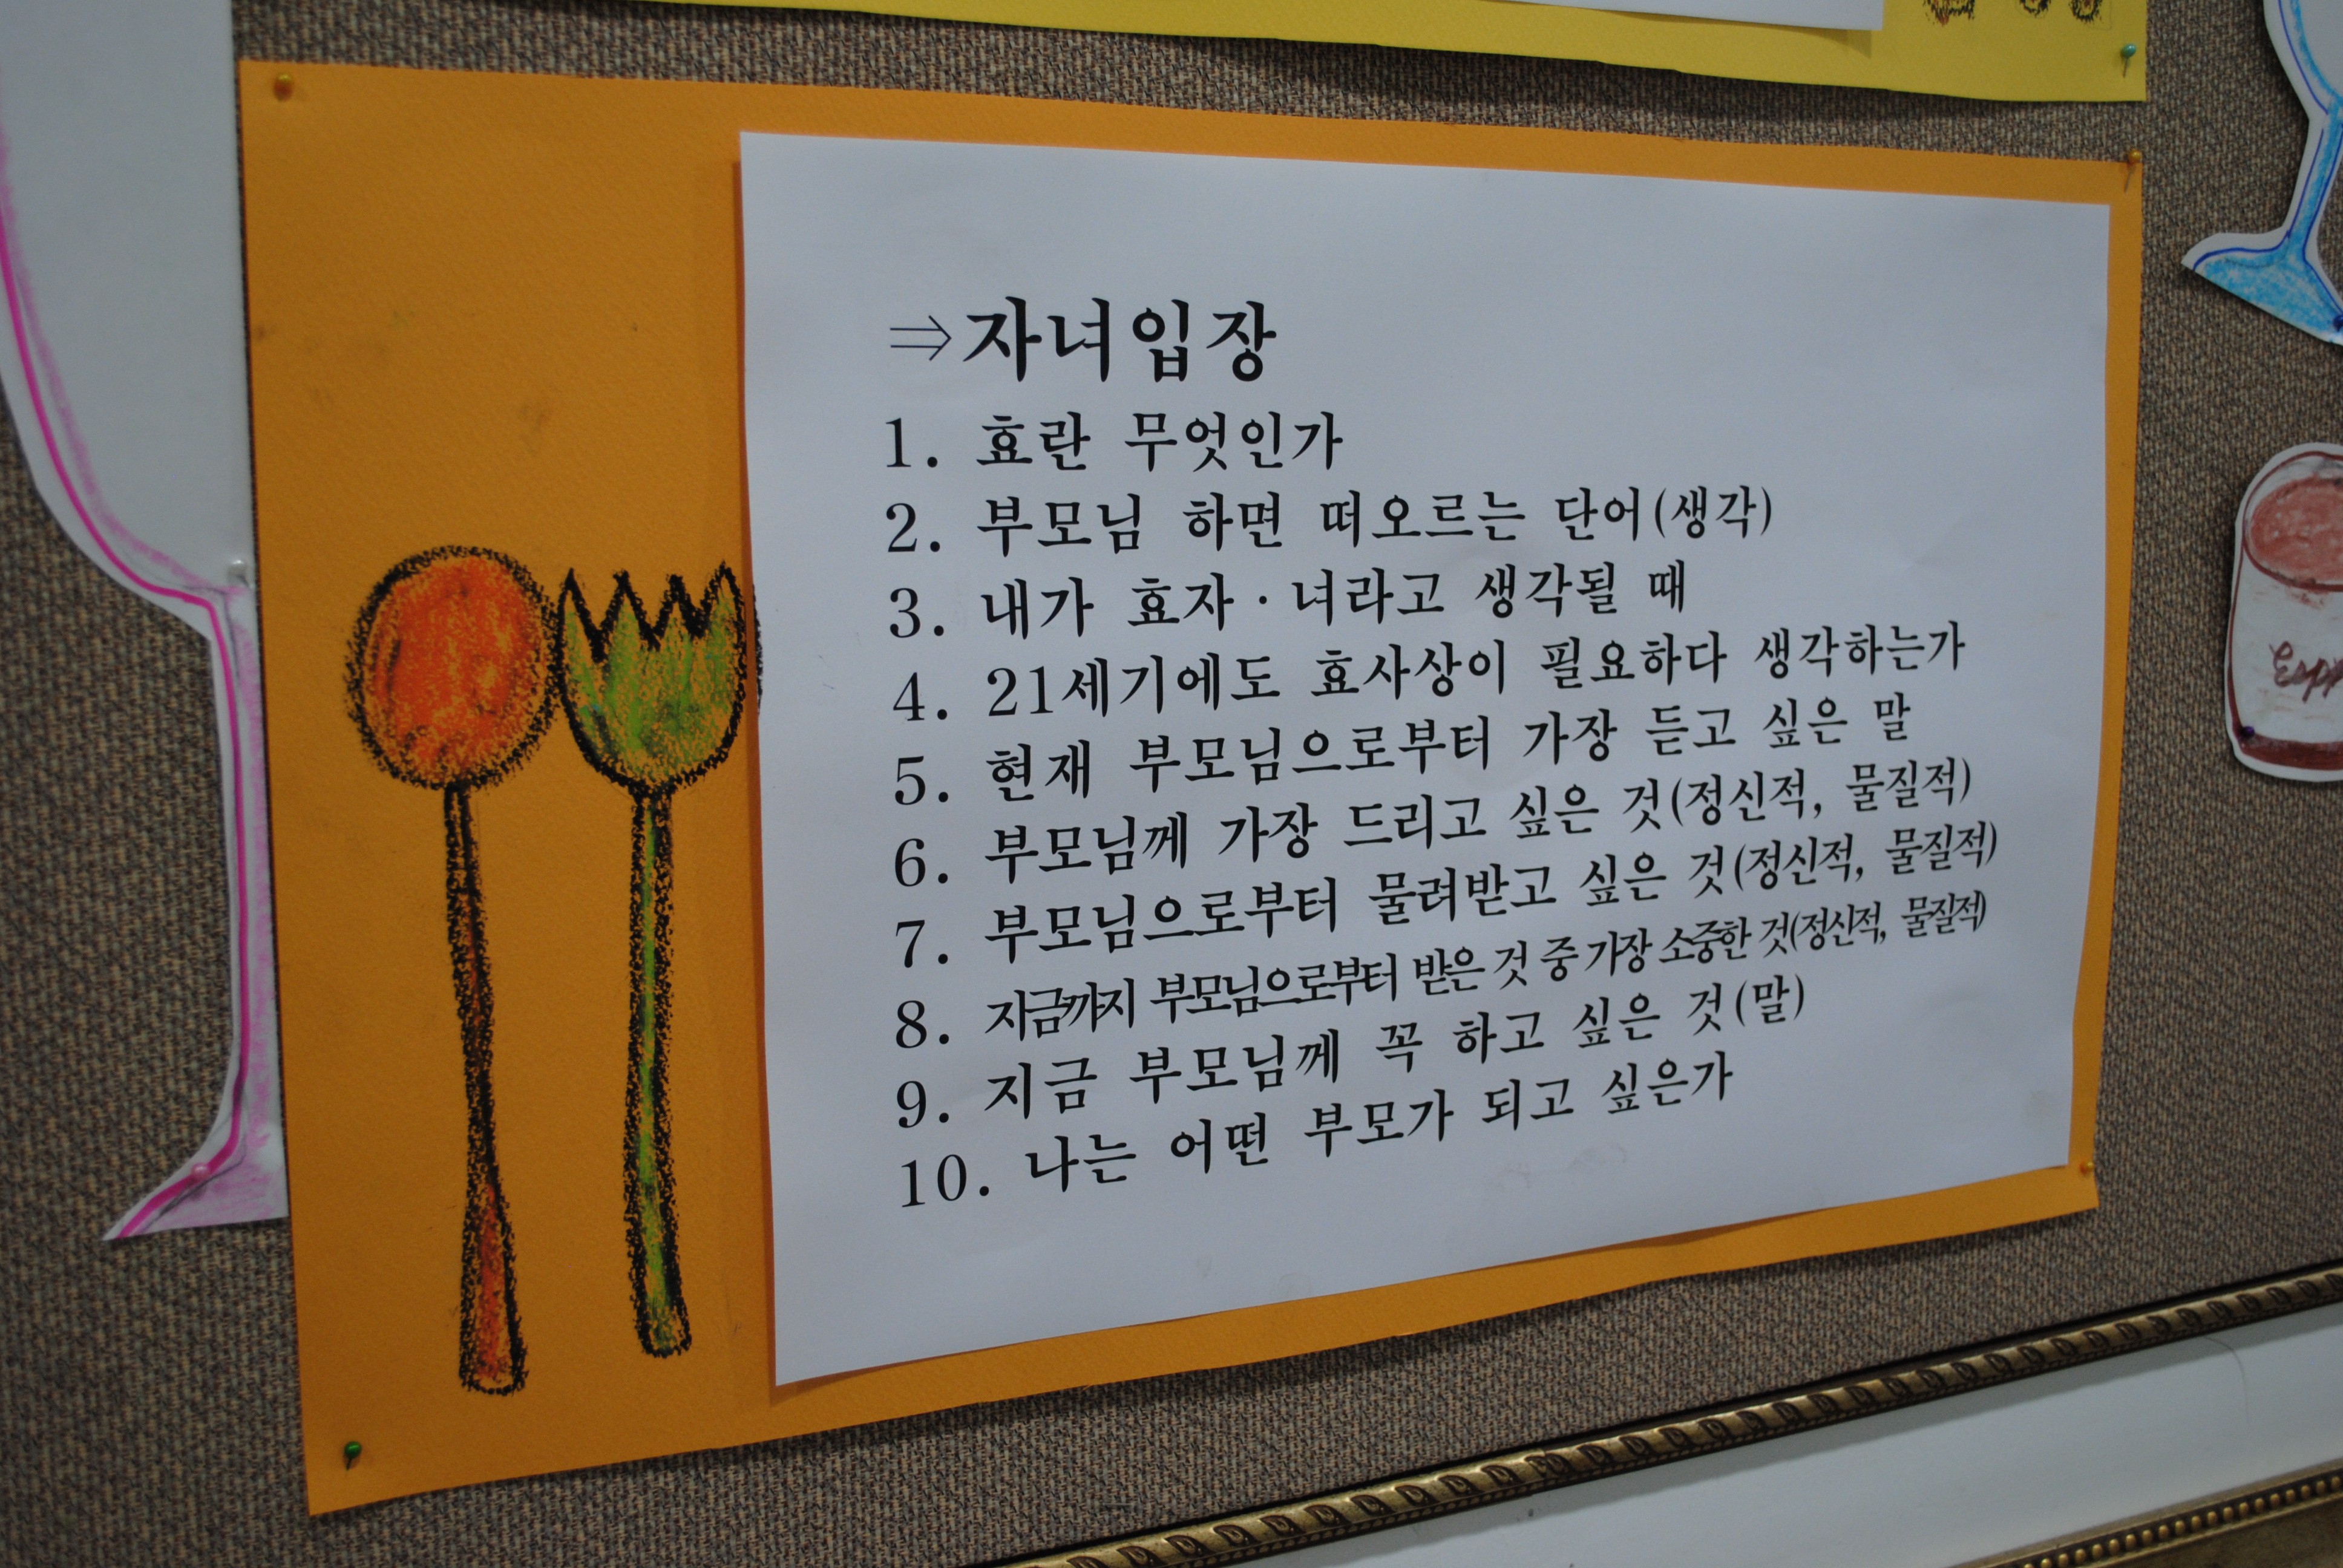 ⇒자녀입장
1. 효란 무엇인가
2. 부모님 하면 떠오르는 단어(생각)
3. 내가 효자·녀라고 생각될 때
4. 21세기에도 효사상이 필요하다 생각하는가
5. 현재 부모님으로부터 가장 듣고 싶은 말
6. 부모님께 가장 드리고 싶은 것(정신적, 물질적)
7. 부모님으로부터 물려받고 싶은 것(정신적, 물질적)
8. 지금까지 부모님으로부터 받은 것 중 가장 소중한 것(정신적, 물질적)
9. 지금 부모님께 꼭 하고 싶은 것(말)
10. 나는 어떤 부모가 되고 싶은가